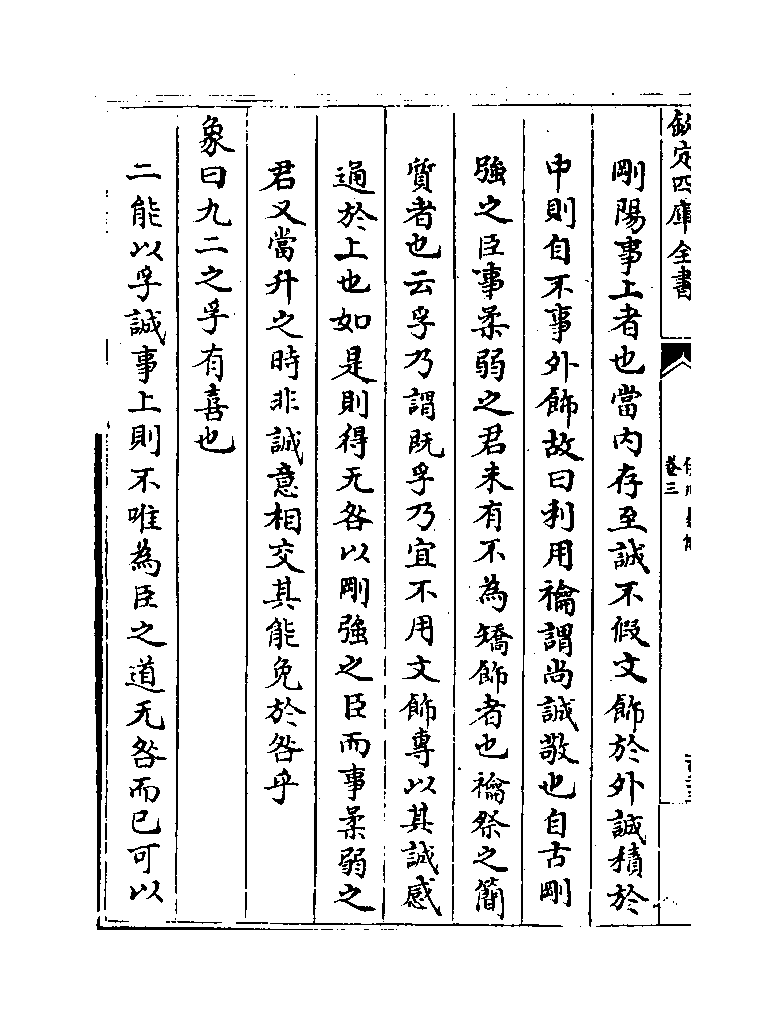 欽定四庫全書
卷三
剛陽事上者也當内存至誠不假文飾於外誠積於
中則自不事外飾故曰利用禴謂尚誠敬也自古剛
強之臣事柔弱之君未有不為矯飾者也禴祭之簡
質者也云孚乃謂既孚乃宜不用文飾專以其誠感
通於上也如是則得无咎以剛強之臣而事柔弱之
君又當升之時非誠意相交其能免於咎乎
象曰九二之孚有喜也
二能以孚誠事上則不唯為臣之道无咎而已可以